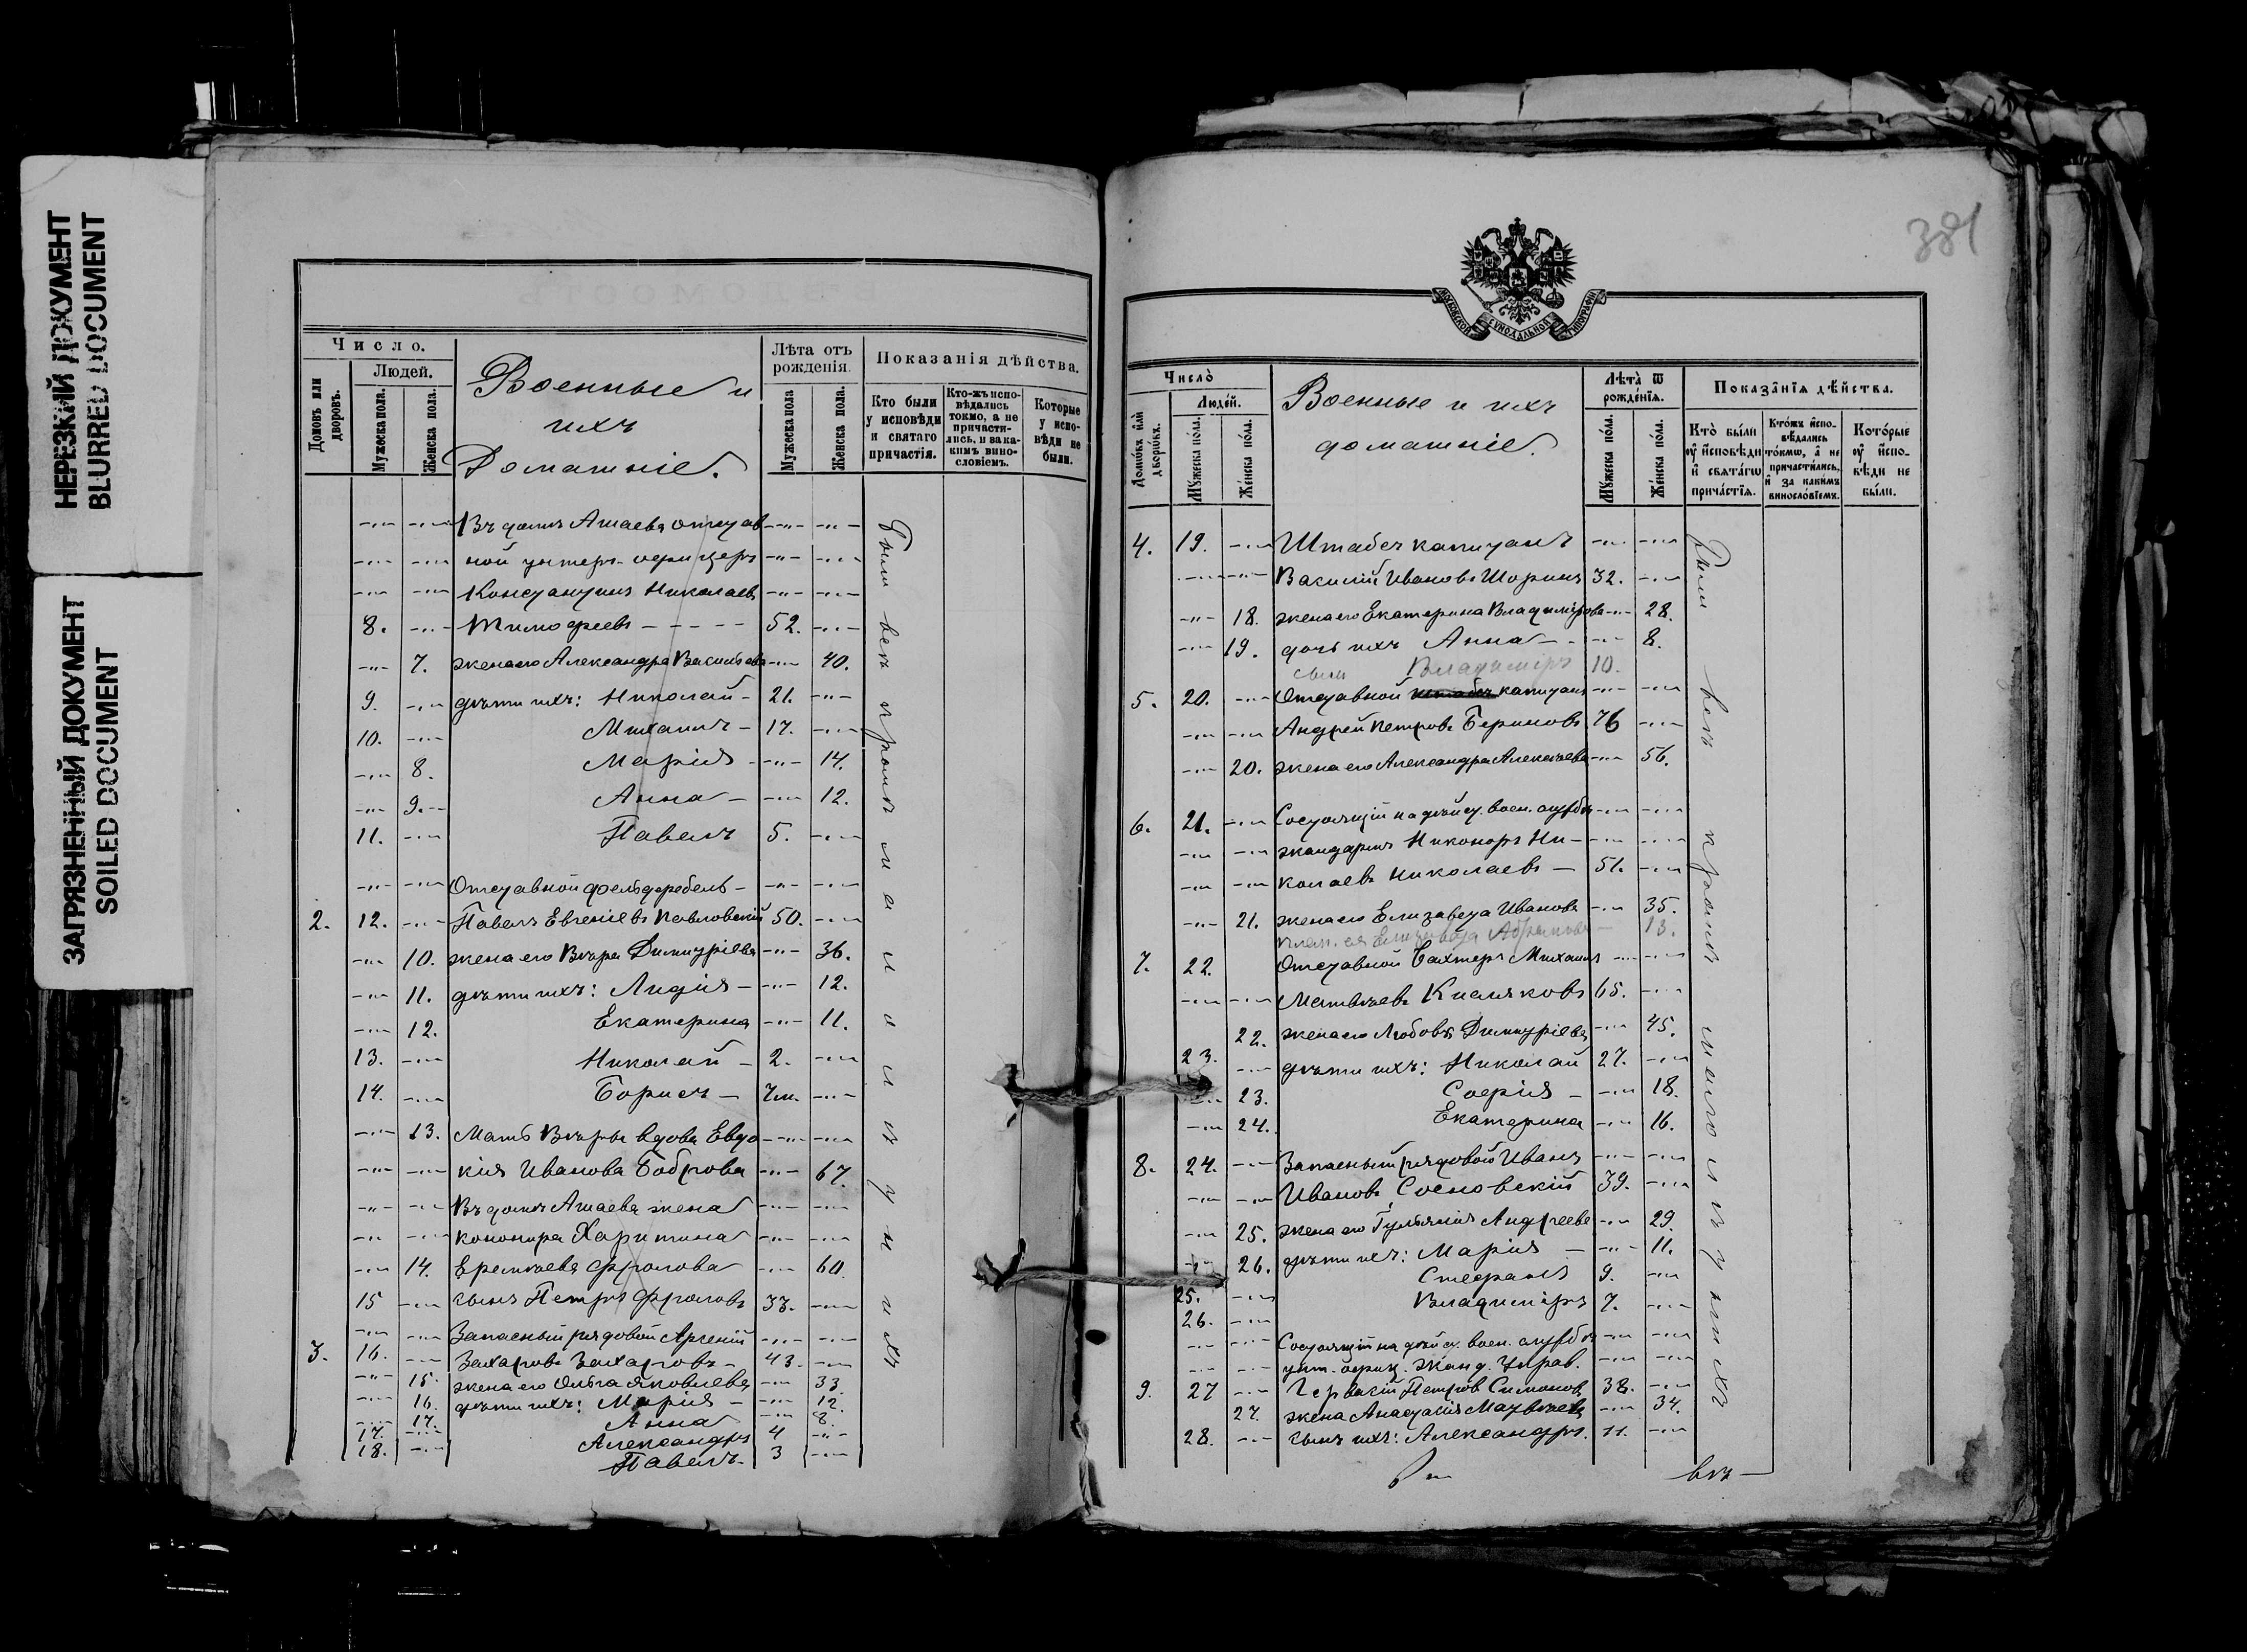 НЕРЕЗКИЙ ДОКУМЕНТ
BLURRED DOCUMENT
ЗАГРЯЗНЕННЫЙ ДОКУМЕНТ
SOILED DOCUMENT
Число.
Людей.
Домовъ или дворовъ.
Мужеска пола.
Женска пола.
Военные и
ихъ
Домашніе.
Лѣта отъ рожденія.
Мужеска пола
Женска пола.
Показанія дѣйства.
Кто были у исповѣди и святаго причастія.
Кто-жъ исповѣдались токмо, а не причастились, и за какимъ винословіемъ.
Которые у исповѣди не были.
Въ домѣ Ашаева отстав
ной унтеръ-офицеръ
Константинъ Николаевъ
8. Тимофеевъ 52.
7. жена его Александра Васильева 40.
9. дѣти ихъ: Николай 21.
10. Михаилъ 17.
8. Марія 14.
9. Анна 12.
11. Павелъ 5.
Отставной фельдфебель
2. 12. Павелъ Евгеніевъ Павловскій 50.
10. жена его Вѣра Димитріева 36.
11. дѣти ихъ: Лидія 12.
12. Екатерина 11.
13. Николай 2.
14. Борисъ 7м.
13. Мать Вѣры вдова Евдо
кія Иванова Боброва 67.
Въ домѣ Ашаева жена
кононира Харитина
14. Еремѣева Фролова 60.
15 сынъ Петръ Фроловъ 33.
Запасный рядовой Арсеній
3. 16. Захаровъ Захаровъ 43.
15. жена его Ольга Яковлева 33.
16. дѣти ихъ: Марія 12.
17. Анна 8.
17. Александръ 4
18. Павелъ 3
Были всѣ кромѣ малолѣтнихъ
381
МОСКОВСКОЙ СѴНОДАЛЬНОЙ ТИПОГРАФІИ
Число̀
Людє́й.
Домѡ́въ и҆лѝ дворѡ́въ.
Мꙋ́жеска по́ла.
Же́нска по́ла.
Военные и ихъ
домашніе.
Лѣ́та ѿ рожде́нїѧ.
Мꙋ́жеска по́ла.
Же́нска по́ла.
Показа̑нїѧ дѣ́йства.
Кто̀ бы́ли ᲂу҆ и҆сповѣ́ди и҆ свѧта́гѡ прича́стїѧ.
Кто́жъ и҆сповѣ́дались то́кмѡ, а҆ не причасти́лись, и҆ за каки́мъ виносло́вїемъ.
Кото́рые ᲂу҆ и҆сповѣ́ди не бы́ли.
4. 19. Штабсъ капитанъ
Василій Ивановъ Шоринъ 32.
18. жена его Екатерина Владимірова 28.
19. дочь ихъ Анна 8.
сынъ Владиміръ 10.
5. 20. Отставной капитанъ
Андрей Петровъ 76
20. жена его Александра Алексѣева 56.
6. 21. Состоящій на дѣйст. воен. службѣ
жандармъ Никоноръ Ни-
колаевъ Николаевъ 51.
21. жена его Елизавета Иванова 35.
плем. ея Елизавета 13.
7. 22. Отставной Вахтеръ Михаилъ
Матвѣевъ 65.
22. жена его Любовь Димитріева 45.
23. дѣти ихъ: Николай 27.
23. Софія 18.
24. Екатерина 16.
8. 24. Запасный рядовой Иванъ
Ивановъ Сосновскій 39.
25. жена его Гульянія Андреева 29.
26. дѣти ихъ: Марія 11.
25. Стефанъ 9.
26. Владиміръ 7.
Состоящій на дѣйст. воен. службѣ
унт. офиц. Жанд. Управ.
9. 27 Гервасій Петровъ Симоновъ 38.
27. жена Анастасія Матвѣева 34.
28. сынъ ихъ: Александръ. 11.
Были всѣ кромѣ малолѣтнихъ